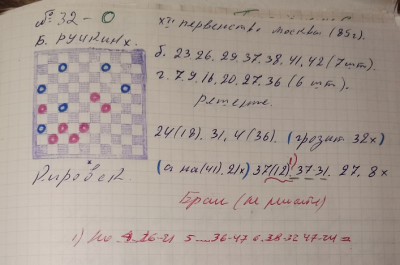 № 32 - 0
Б. РУЧКИН x.
XII первенство Москвы (85г.)
б. 23.26.29.37.38.41.42 (7шт.)
ч. 7.9.16.20.27.36 (6 шт.)
решение.
24(18). 31, 4(36). (грозит 32x)
(а на(41). 21x) 37(12)! 37-31. 27. 8x
Брак (не решает)
1) Но 26-21 5 ... 36-47 6.38-32 47-24 =